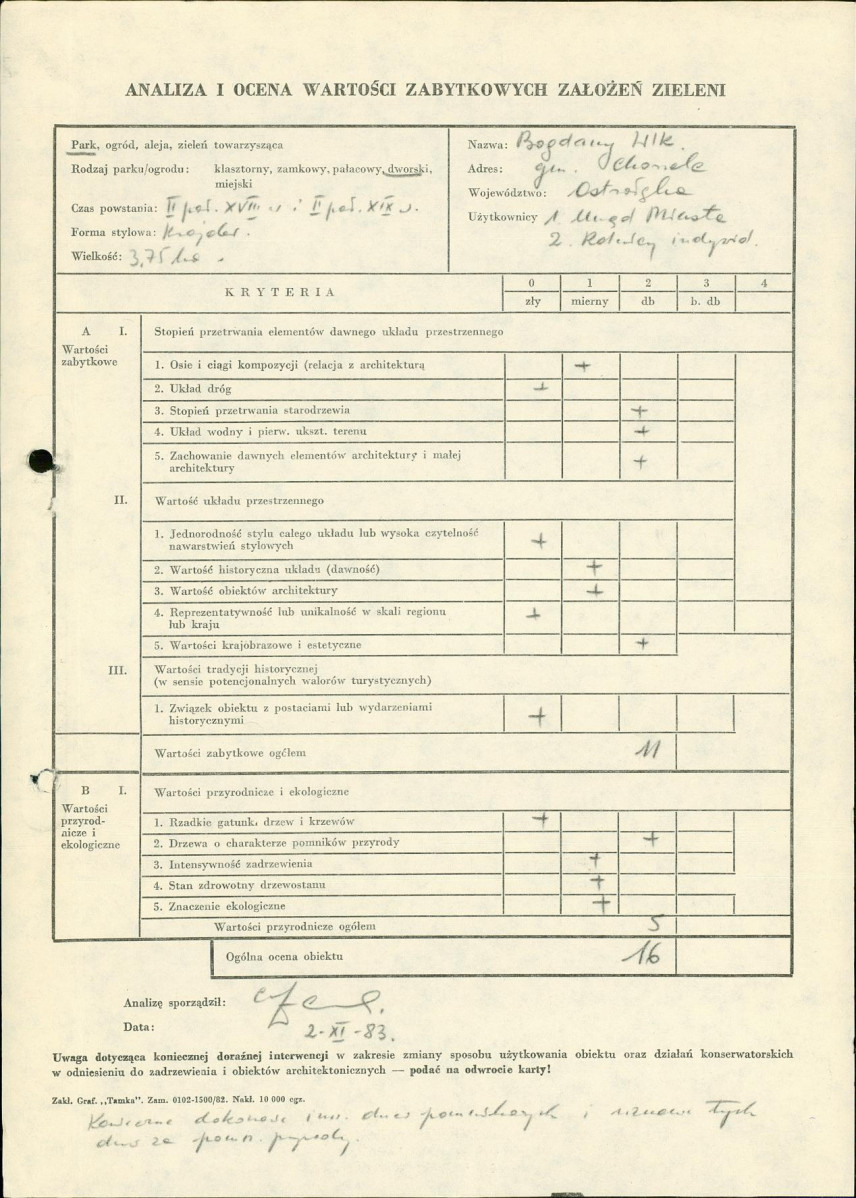 ANALIZA I OCENA WARTOŚCI ZABYTKOWYCH ZAŁOŻEŃ ZIELENI
Park, ogród, aleja, zieleń towarzysząca
Rodzaj parku/ogrodu: klasztorny, zamkowy, pałacowy, dworski,
miejski
Czas powstania: II poł. XVIII w i II poł. XIX w.
Forma stylowa: Krajobr.
Wielkość: 3,75 ha.
Nazwa: Bogdany Wlk.
Adres: gm. Chorzele
Województwo: Ostrołęka
Użytkownicy 1. Urząd Miasta
2. Rolnicy indywid.
KRYTERIA 0 1 2 3 4
zły mierny db b. db
A I. Stopień przetrwania elementów dawnego układu przestrzennego
Wartości
zabytkowe
1. Osie i ciągi kompozycji (relacja z architekturą +
2. Układ dróg +
3. Stopień przetrwania starodrzewia +
4. Układ wodny i pierw. ukszt. terenu +
5. Zachowanie dawnych elementów architektury i małej
architektury +
II. Wartość układu przestrzennego
1. Jednorodność stylu całego układu lub wysoka czytelność
nawarstwień stylowych +
2. Wartość historyczna układu (dawność) +
3. Wartość obiektów architektury +
4. Reprezentatywność lub unikalność w skali regionu
lub kraju +
5. Wartości krajobrazowe i estetyczne +
III. Wartości tradycji historycznej
(w sensie potencjonalnych walorów turystycznych)
1. Związek obiektu z postaciami lub wydarzeniami
historycznymi +
Wartości zabytkowe ogółem 11
B I. Wartości przyrodnicze i ekologiczne
Wartości
przyrod-
nicze i
ekologiczne
1. Rzadkie gatunki drzew i krzewów +
2. Drzewa o charakterze pomników przyrody +
3. Intensywność zadrzewienia +
4. Stan zdrowotny drzewostanu +
5. Znaczenie ekologiczne +
Wartości przyrodnicze ogółem 5
Ogólna ocena obiektu 16
Analizę sporządził:
Data: 2-XI-83.
Uwaga dotycząca koniecznej doraźnej interwencji w zakresie zmiany sposobu użytkowania obiektu oraz działań konserwatorskich
w odniesieniu do zadrzewienia i obiektów architektonicznych — podać na odwrocie karty!
Zakł. Graf. „Tamka". Zam. 0102-1500/82. Nakł. 10 000 egz.
Konieczne dokonać inw. drzew pomnikowych i uznanie tych
drzew za pomn. przyrody.